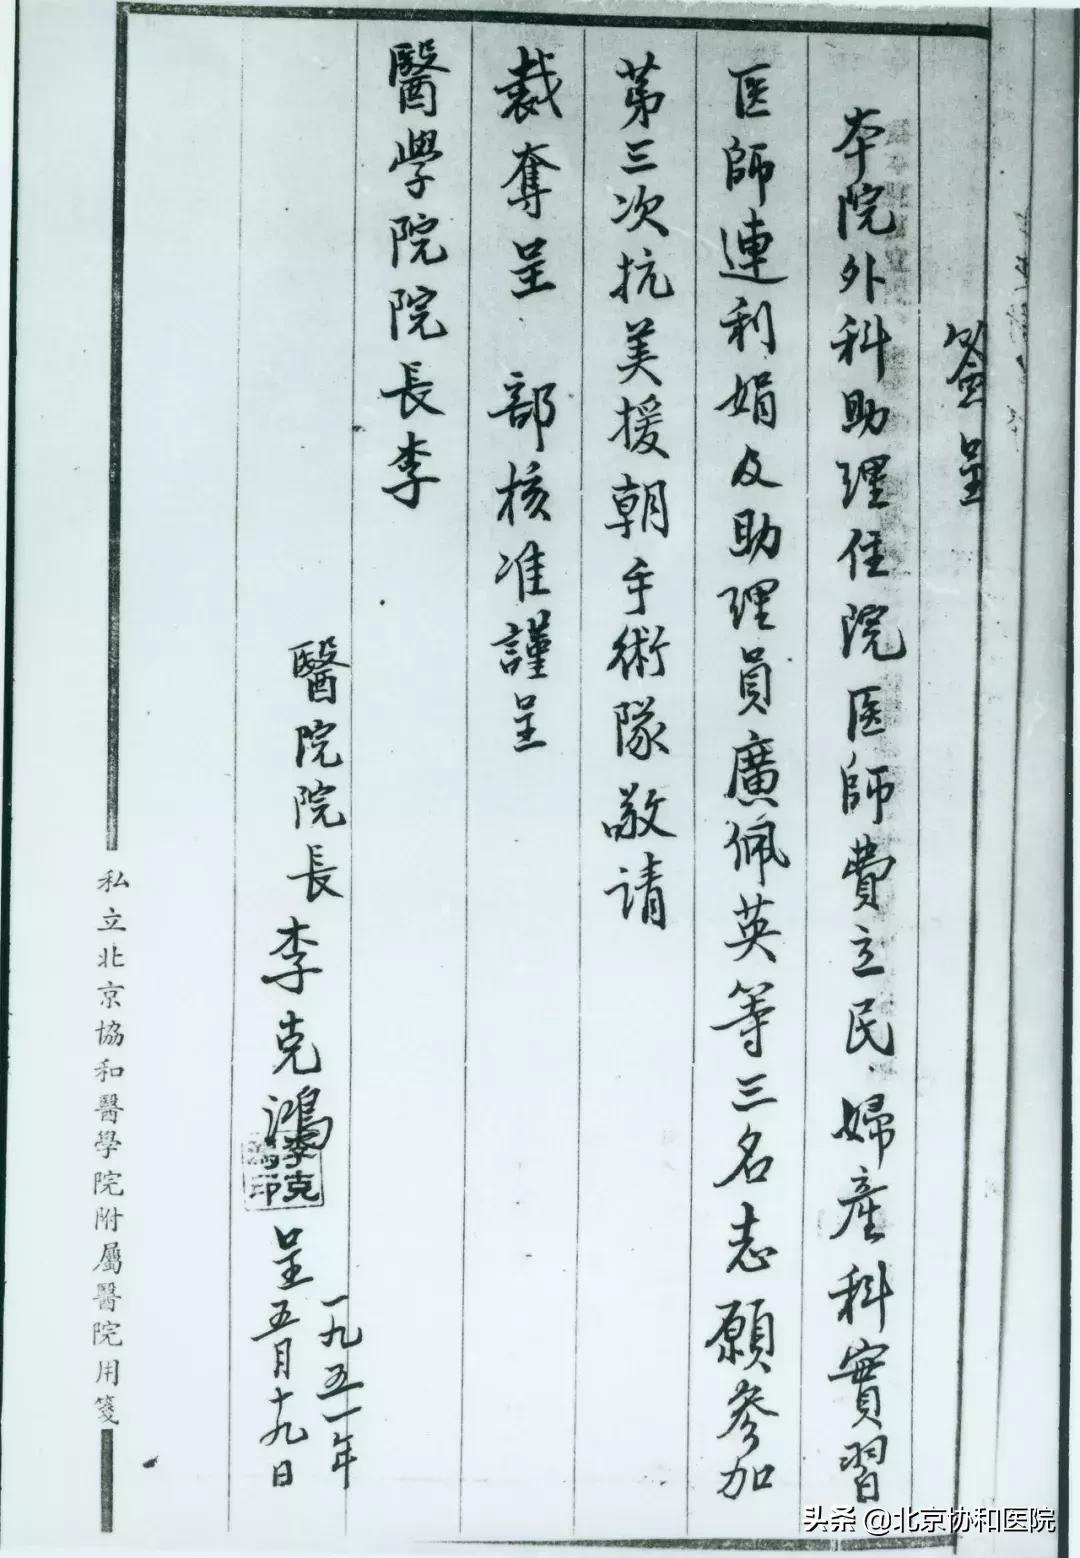 簽呈
本院外科助理住院医師費立民、婦產科實習
医師連利娟及助理員廣佩英等三名志願參加
第三次抗美援朝手術隊敬请
裁奪呈 部核准謹呈
醫學院院長李
醫院院長 李克鴻 呈
李克鴻印
一九五一年
五月十九日
私立北京協和醫學院附屬醫院用箋
头条 @北京协和医院